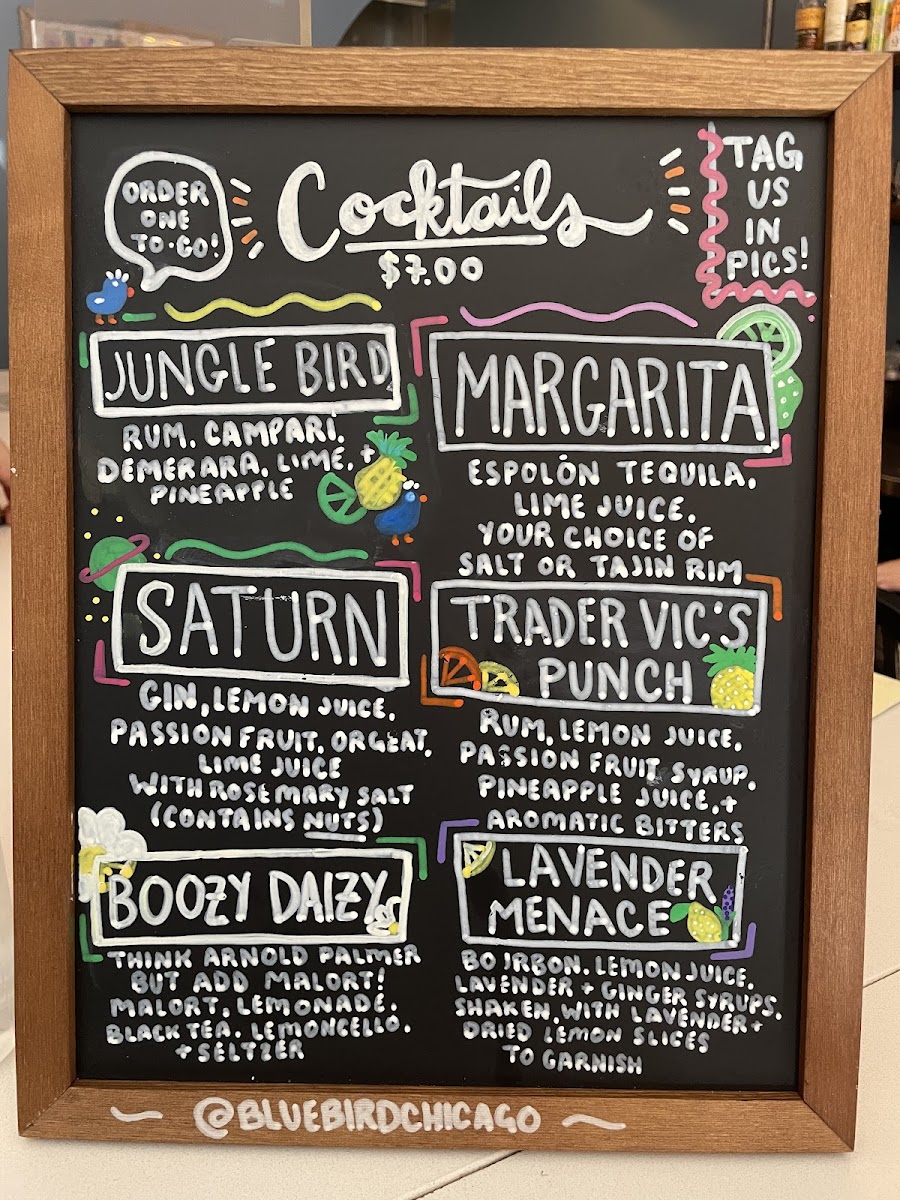 ORDER
ONE
TO-GO!
Cocktails
$7.00
TAG
US
IN
PICS!
JUNGLE BIRD
RUM, CAMPARI,
DEMERARA, LIME, +
PINEAPPLE
MARGARITA
ESPOLÒN TEQUILA,
LIME JUICE,
YOUR CHOICE OF
SALT OR TAJIN RIM
SATURN
GIN, LEMON JUICE,
PASSION FRUIT, ORGEAT,
LIME JUICE
WITH ROSEMARY SALT
(CONTAINS NUTS)
TRADER VIC'S
PUNCH
RUM, LEMON JUICE,
PASSION FRUIT SYRUP,
PINEAPPLE JUICE, +
AROMATIC BITTERS
BOOZY DAIZY
THINK ARNOLD PALMER
BUT ADD MALORT!
MALORT, LEMONADE,
BLACK TEA, LEMONCELLO,
+ SELTZER
LAVENDER
MENACE
BOURBON, LEMON JUICE,
LAVENDER + GINGER SYRUPS,
SHAKEN, WITH LAVENDER +
DRIED LEMON SLICES
TO GARNISH
@BLUEBIRDCHICAGO